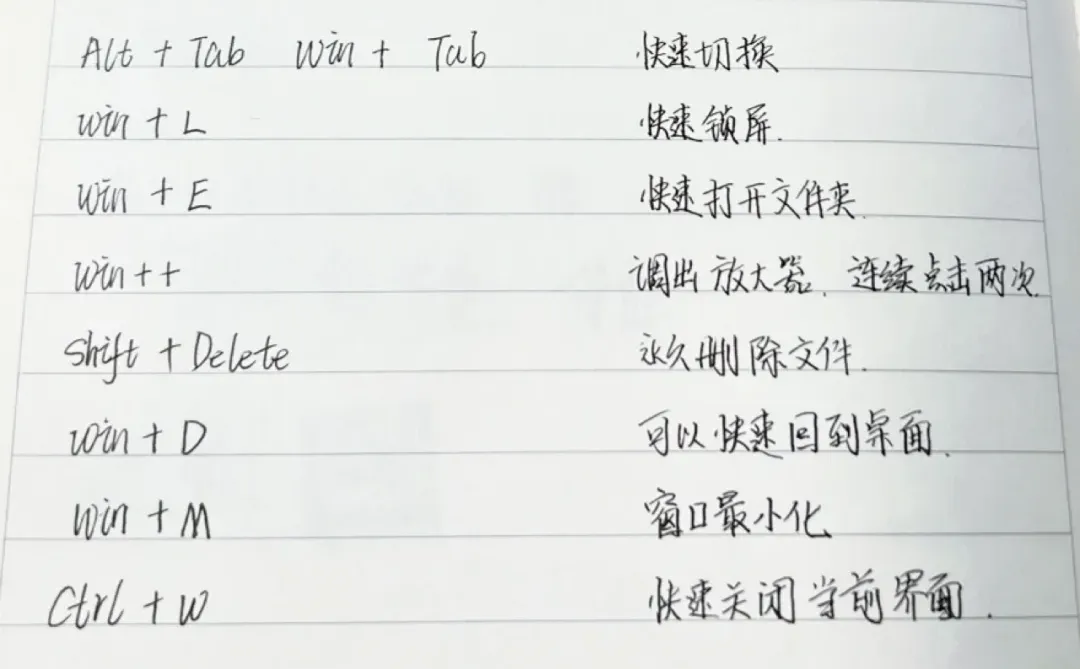 Alt + Tab win + Tab 快速切换
win + L 快速锁屏.
win + E 快速打开文件夹.
win + + 调出放大器. 连续点击两次.
shift + Delete 永久删除文件.
win + D 可以快速回到桌面.
win + M 窗口最小化
Ctrl + w 快速关闭当前界面.